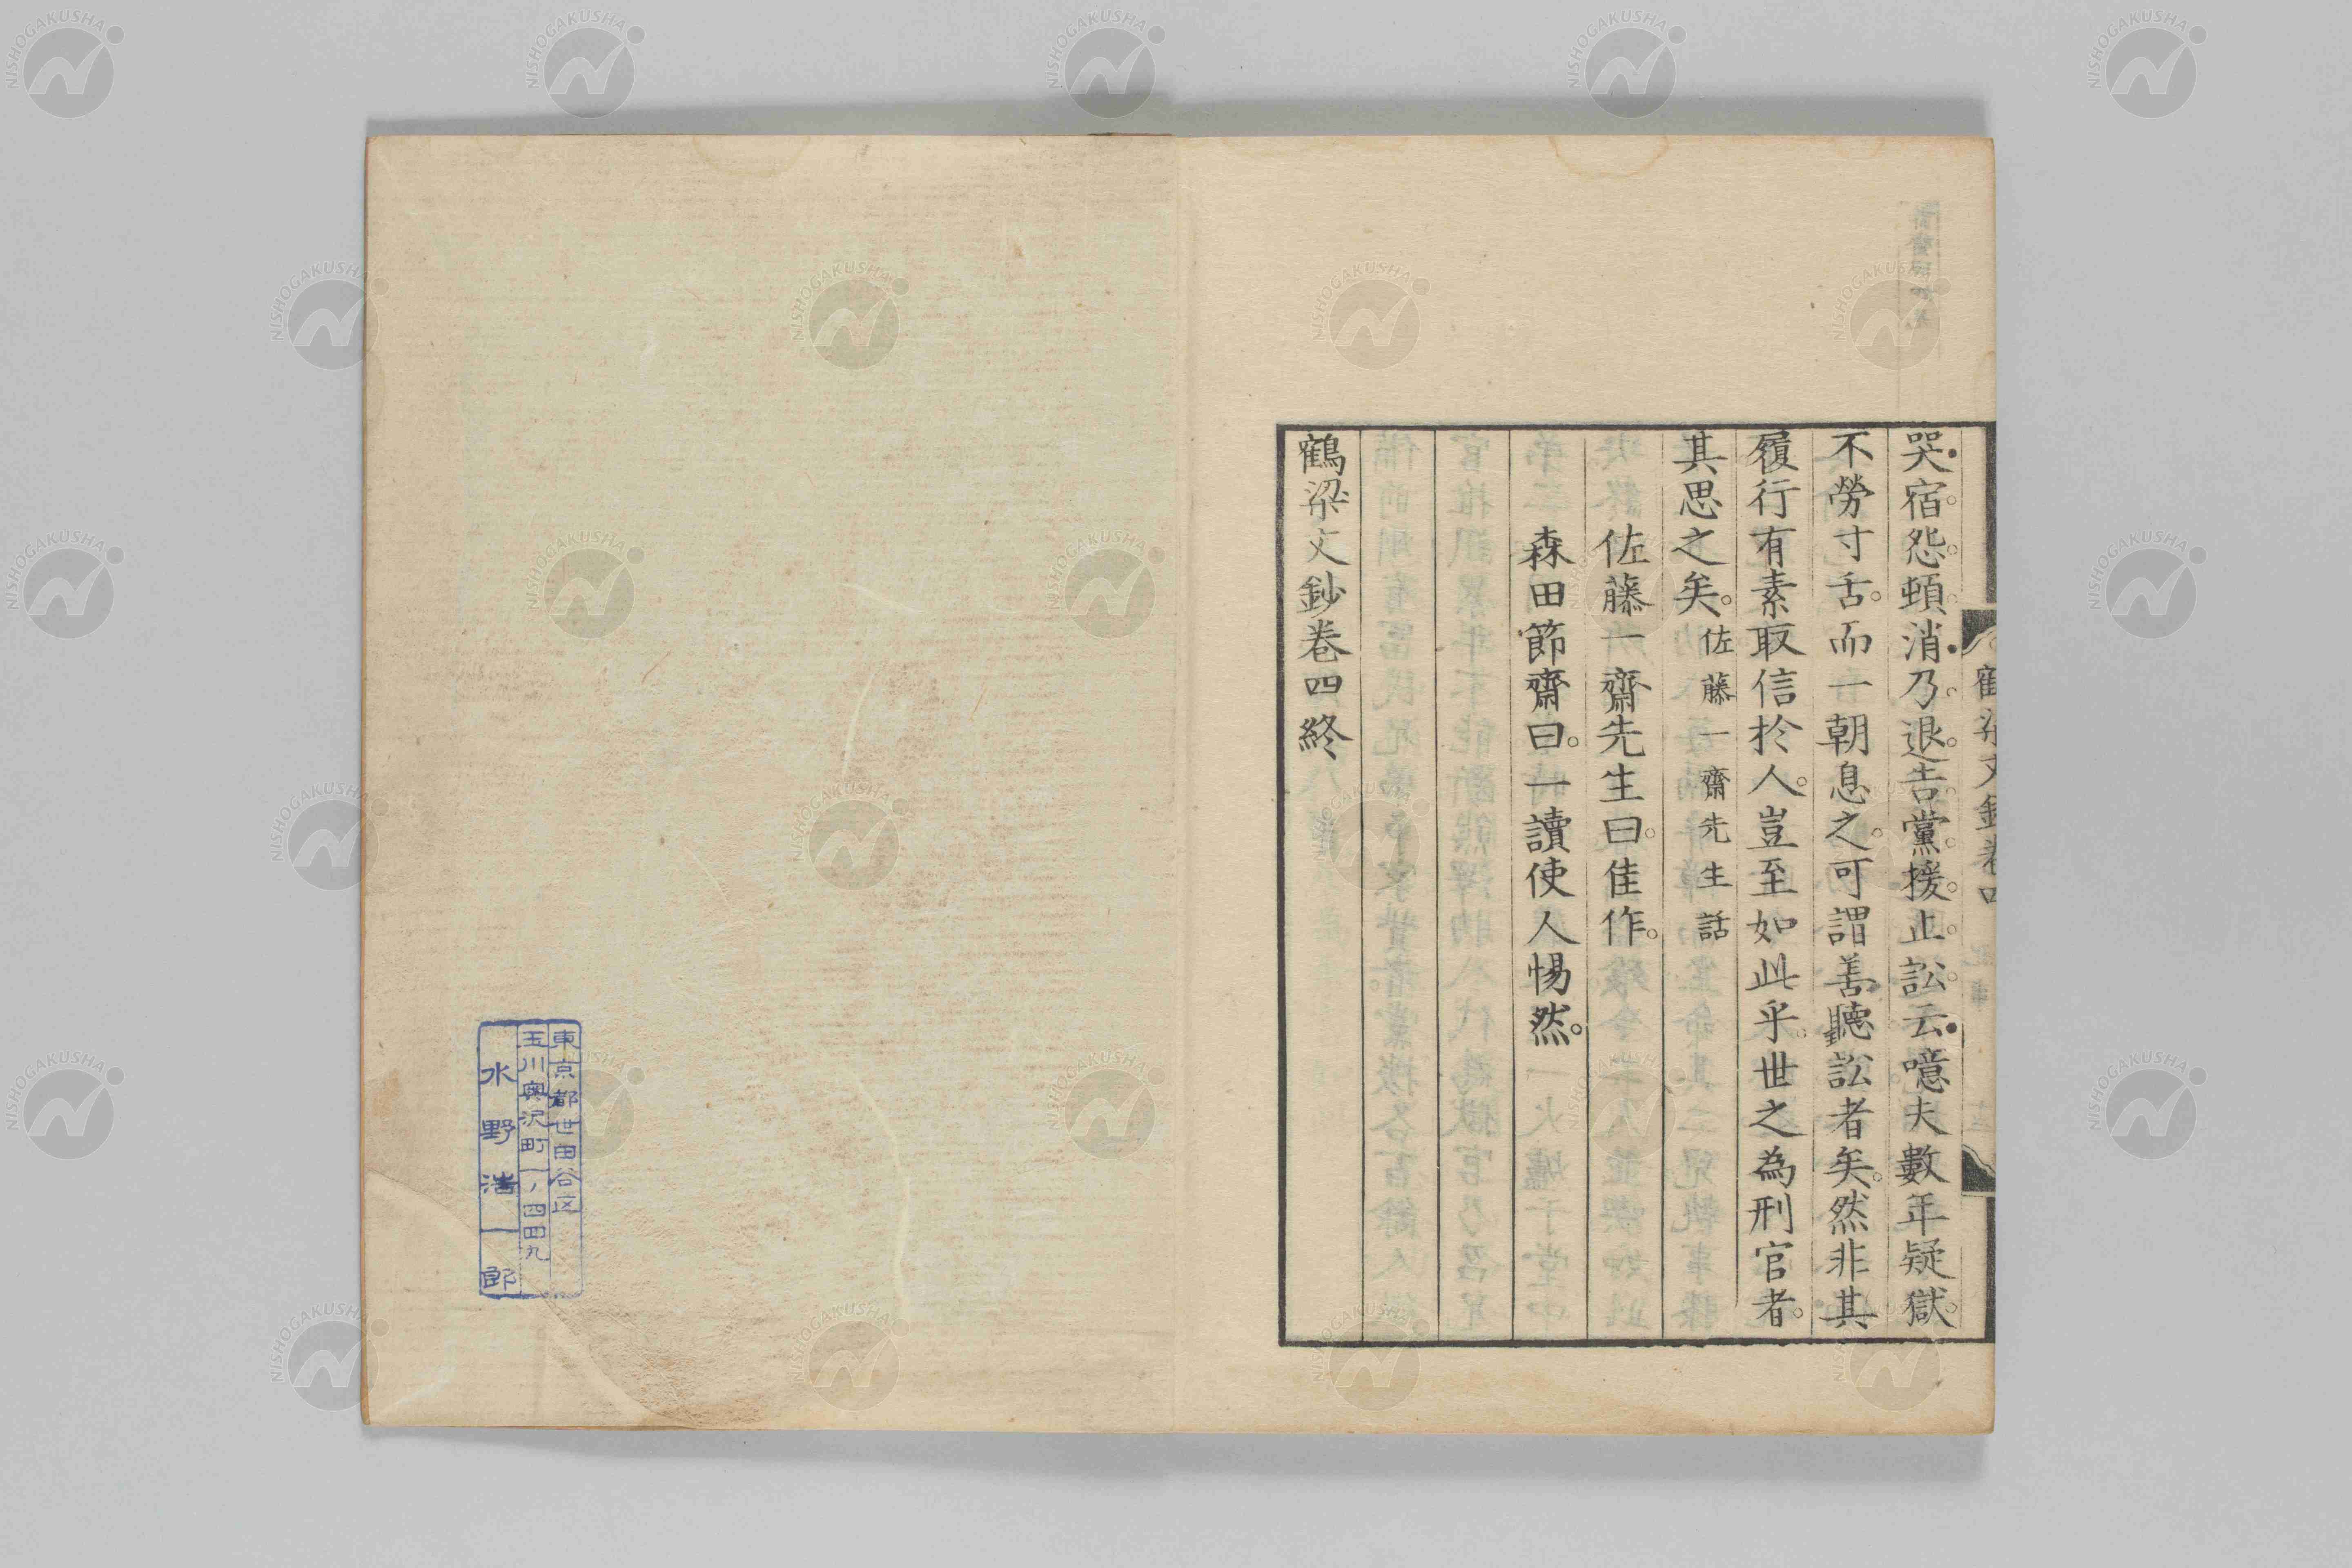 哭宿怨頓消乃退告黨援止訟云噫夫數年疑獄
不勞寸舌而一朝息之可謂善聽訟者矣然非其
履行有素取信於人豈至如此乎世之為刑官者
其思之矣佐藤一齋先生話
佐藤一齋先生曰佳作
森田節齋曰一讀使人惕然
鶴梁文鈔卷四終
東京都世田谷区
玉川奥沢町一ノ四四九
水野浩一郎
NISHOGAKUSHA